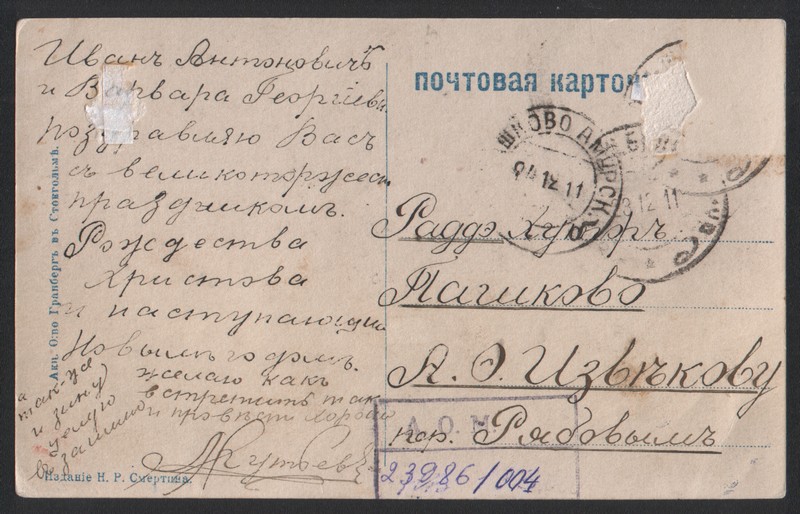 Иванъ Антоновичъ
и Варвара Георгіевна
поздравляю Васъ
съ великоторжест
праздникомъ
Рождества
Христова
и наступающим
Новымъ годомъ.
желаю какъ
встретить так
и провести хорошо
а
такъ-же
и зину
цѣлую
Изданіе Н. Р. Смертина.
Акц. О-во Гранбергъ въ Стокгольмѣ.
ПОЧТОВАЯ КАРТОЧ
ШКОВО АМУРСК.
24 12 11
12 11
Раддэ Хуторъ
Пашково
А. Ѳ. Извѣкову
пор. Рябовымъ
А. О. М.
23986/004